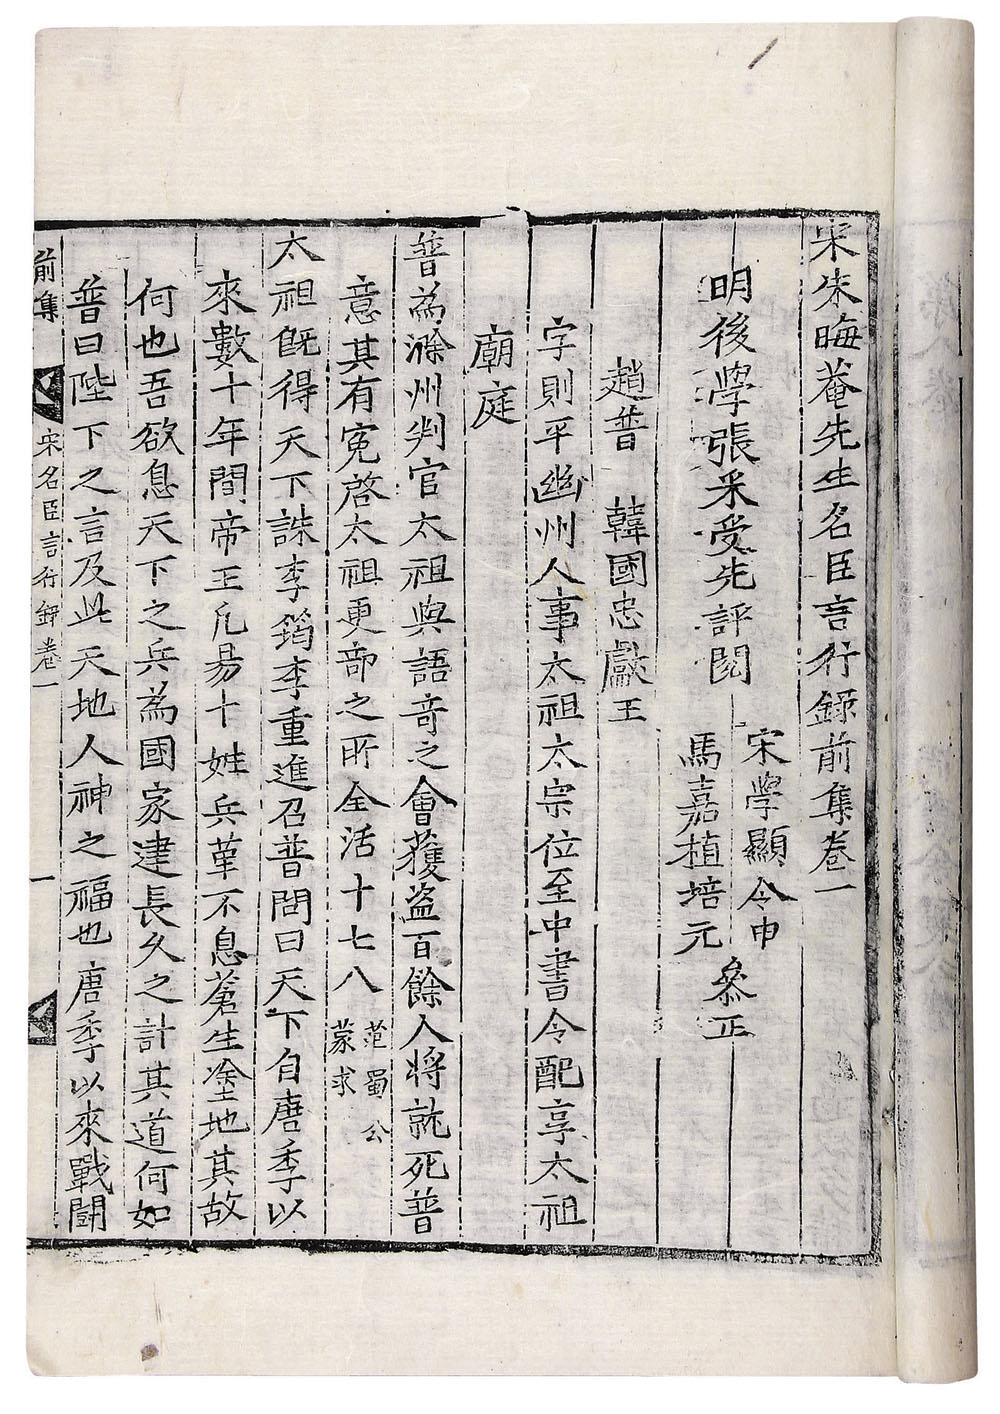 宋朱晦菴先生名臣言行錄前集卷一
明後學張采受先評閱
宋學顯令申
馬嘉植培元
參正
趙普 韓國忠獻王
字則平幽州人事太祖太宗位至中書令配享太祖
廟庭
普為滁州判官太祖與語奇之會獲盜百餘人將就死普
意其有冤啓太祖更部之所全活十七八
范蜀公
蒙求
太祖旣得天下誅李筠李重進召普問曰天下自唐季以
來數十年間帝王凡易十姓兵革不息蒼生塗地其故
何也吾欲息天下之兵為國家建長久之計其道何如
普曰陛下之言及此天地人神之福也唐季以來戰鬪
前集
宋名臣言行錄卷一
一